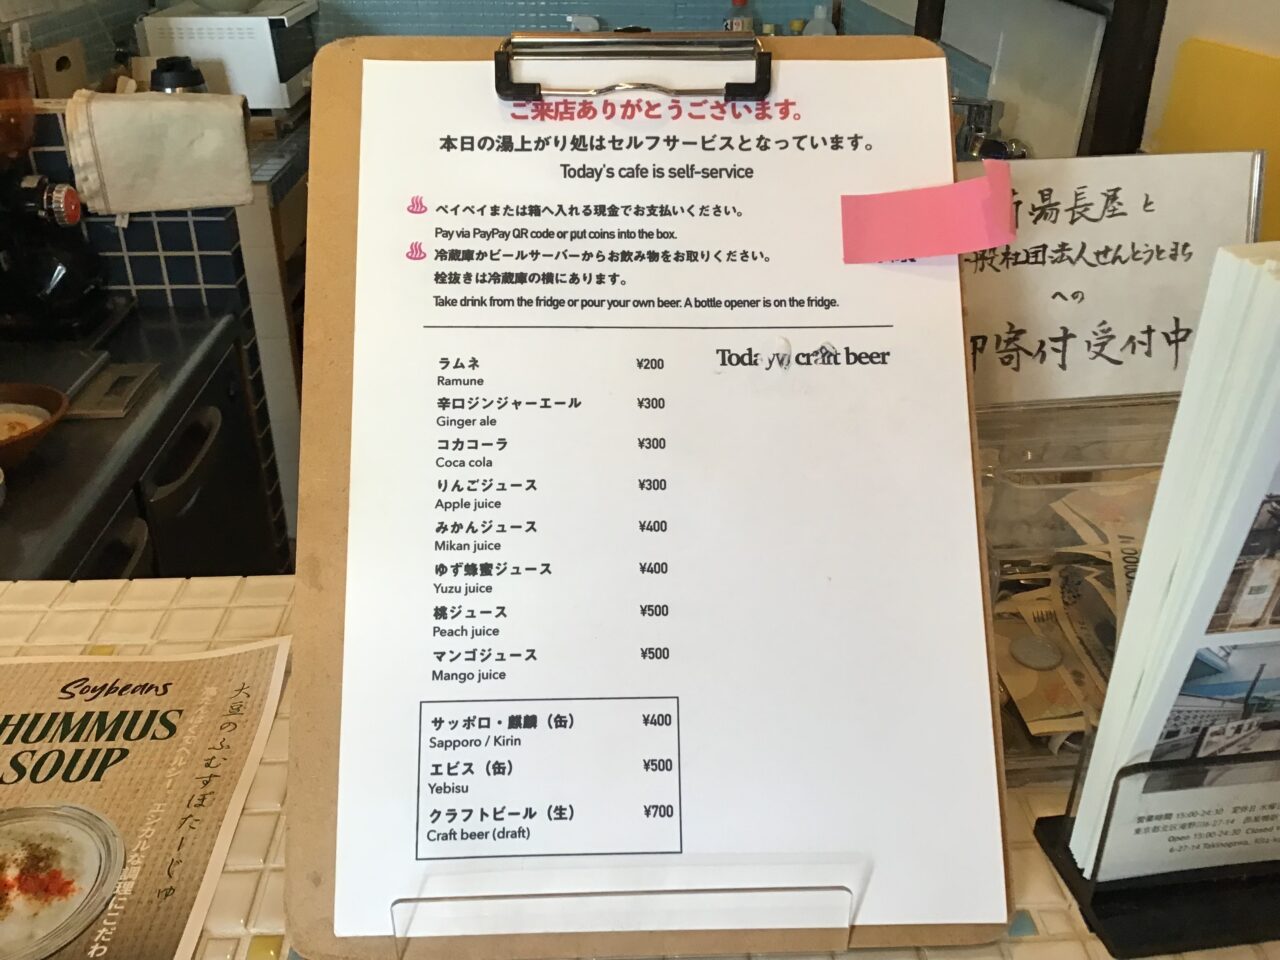 ご来店ありがとうございます。
本日の湯上がり処はセルフサービスとなっています。
Today's cafe is self-service
ペイペイまたは箱へ入れる現金でお支払いください。
Pay via PayPay QR code or put coins into the box.
冷蔵庫かビールサーバーからお飲み物をお取りください。
栓抜きは冷蔵庫の横にあります。
Take drink from the fridge or pour your own beer. A bottle opener is on the fridge.
ラムネ ¥200
Ramune
辛口ジンジャーエール ¥300
Ginger ale
コカコーラ ¥300
Coca cola
りんごジュース ¥300
Apple juice
みかんジュース ¥400
Mikan juice
ゆず蜂蜜ジュース ¥400
Yuzu juice
桃ジュース ¥500
Peach juice
マンゴジュース ¥500
Mango juice
サッポロ・麒麟（缶） ¥400
Sapporo / Kirin
エビス（缶） ¥500
Yebisu
クラフトビール（生） ¥700
Craft beer (draft)
craft beer
湯長屋と
般社団法人せんとうとまち
への
寄付受付中
Soybeans
HUMMUS
SOUP
大豆のふむすぽたーじゅ
営業時間 15:00-24:30 定休日 水曜
Open 15:00-24:30 Closed
6-27-14 Takinogawa, Kita-